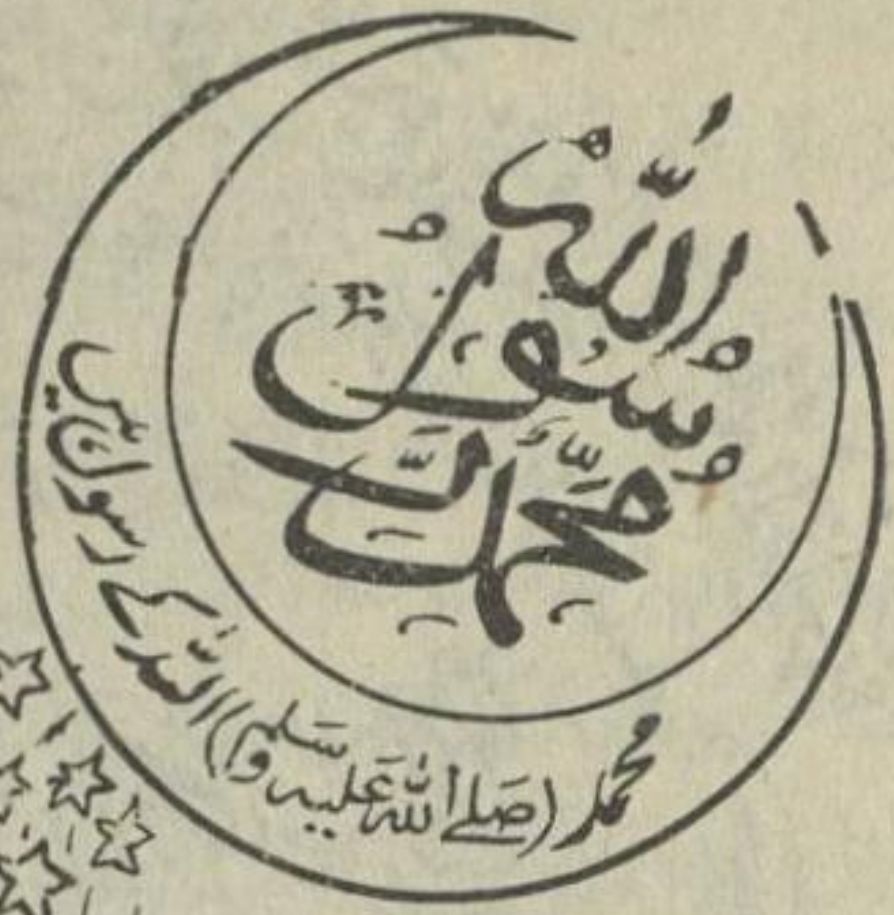 مُحَمَّدٌ رَّسُوْلُ اللّٰهِ
محمد (صَلے اللّٰہُ عَلَیہِ وَسَلم) اللّٰہ کے رسول ہیں